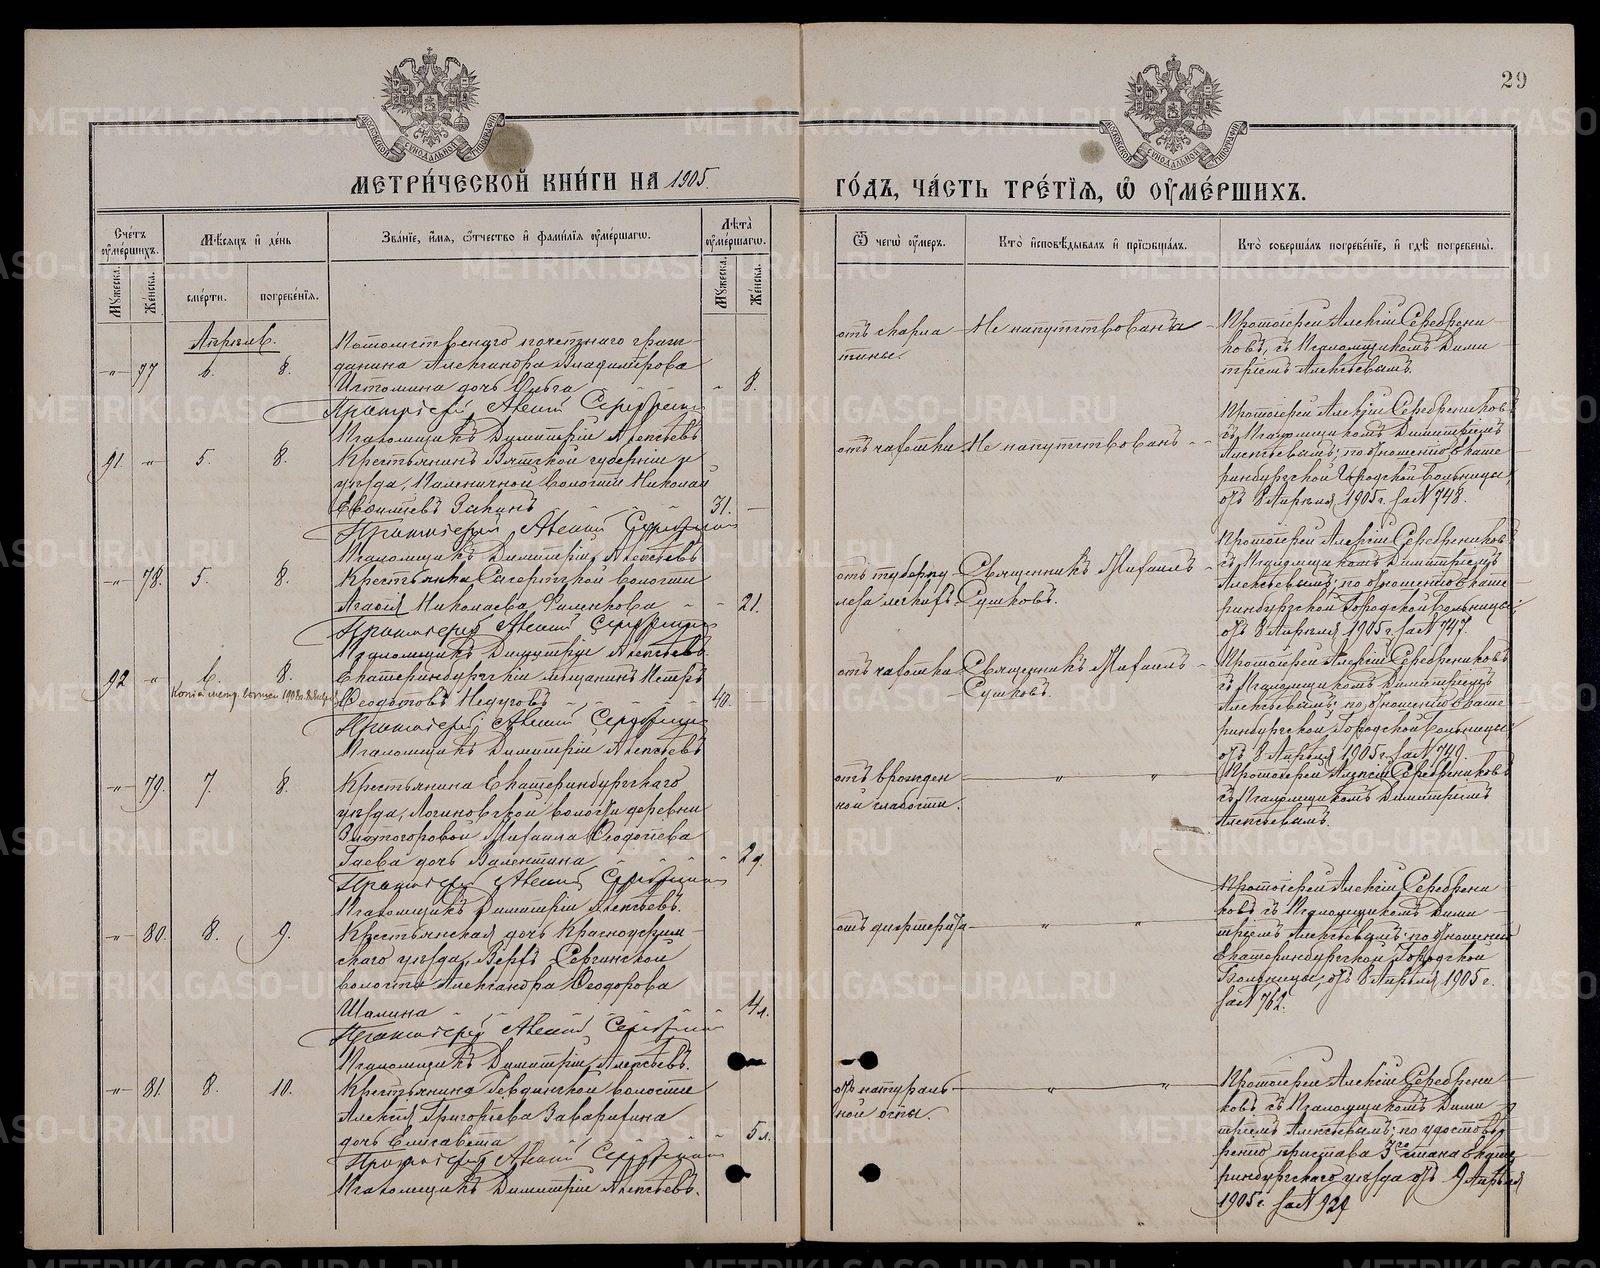 29
МЕТРИ́ЧЕСКОЙ КНИ́ГИ НА 1905.
ГО́ДЪ, ЧА́СТЬ ТРЕ́ТІѦ, Ѡ ОУ҆МЕ́РШИХЪ.
Сче́тъ оу҆ме́ршихъ.
Мѣ́сяцъ и҆ де́нь
Зва́нїе, и҆́мѧ, ѻ҆́тчество и҆ фамі́лїѧ оу҆ме́ршагѡ.
Лѣ́та оу҆ме́ршагѡ.
Мꙋ́жеска.
Же́нска.
сме́рти.
погребе́нїѧ.
Мꙋ́жеска.
Же́нска.
Ѿ чегѡ̀ оу҆́меръ.
Кто̀ и҆сповѣ́дывалъ и҆ прїѡбща́лъ.
Кто̀ соверша́лъ погребе́нїе, и҆ гдѣ̀ погребены̀.
Апрѣль.
-"- 77 6. 8.
Потомственнаго почетнаго граж-
данина Александра Владимірова
Истомина дочь Ольга - 8.
Протоіерей Алексій Серебрени
Псаломщикъ Димитрій Алексѣевъ
отъ скарла
тины.
Не напутствована
Протоіерей Алексій Серебрени
ковъ, съ Псаломщикомъ Дими
тріемъ Алексѣевымъ.
91. -"- 5. 8.
Крестьянинъ Вятской губерніи и
уѣзда, волости Николай
31. -
Протоіерей Алексій
Псаломщикъ Димитрій Алексѣевъ
отъ чахотки
Не напутствованъ
Протоіерей Алексій Серебрениковъ
съ Псаломщикомъ Димитріемъ
Алексѣевымъ; по отношенію Екате
ринбургской Городской Больницы,
отъ 8 Апрѣля 1905 г. за № 748.
-"- 78. 5. 8.
Крестьянка Сысертской волости
Агафія Николаева - - 21.
Протоіерей Алексій
Псаломщикъ Димитрій Алексѣевъ
отъ туберку
леза легкихъ
Священникъ Михаилъ
Сушковъ.
Протоіерей Алексій Серебрениковъ
съ Псаломщикомъ Димитріемъ
Алексѣевымъ; по отношенію Екате
ринбургской Городской больницы
отъ 8 Апрѣля 1905 г. за № 747.
92 " 6. 8.
Екатеринбургскій мѣщанинъ Петръ
Ѳеодотовъ 40. -
Протоіерей Алексій
Псаломщикъ Димитрій Алексѣевъ
отъ чахотки
Священникъ Михаилъ
Сушковъ.
Протоіерей Алексій Серебрениковъ
съ Псаломщикомъ Димитріемъ
Алексѣевымъ; по отношенію Екате
ринбургской Городской больницы
отъ 8 Апрѣля 1905 г. за № 749.
-"- 79. 7. 8.
Крестьянина Екатеринбургскаго
уѣзда, Логиновской волости деревни
Златогоровой Михаила Ѳеодотова
Гаева дочь Валентина - 2 д.
Протоіерей Алексій
Псаломщикъ Димитрій Алексѣевъ.
отъ врожден
ной слабости.
" "
Протоіерей Алексій Серебрениковъ
съ Псаломщикомъ Димитріемъ
Алексѣевымъ.
-"- 80. 8. 9.
Крестьянская дочь Красноуфим-
скаго уѣзда, Верхъ-Сергинской
волости Александра Ѳеодорова
Шалина - 4 л.
Протоіерей Алексій
Псаломщикъ Димитрій Алексѣевъ.
отъ дифтерита
" "
Протоіерей Алексій Серебрени
ковъ съ Псаломщикомъ Дими
тріемъ Алексѣевымъ; по отношенію
Екатеринбургской Городской
Больницы, отъ 8 Апрѣля 1905 г.
за № 762.
-"- 81. 8. 10.
Крестьянина Ревдинской волости
Алексія Григорьева
дочь Елисавета - 5 л.
Протоіерей Алексій
Псаломщикъ Димитрій Алексѣевъ.
отъ натураль
ной оспы.
" "
Протоіерей Алексій Серебрени
ковъ, съ Псаломщикомъ Дими
тріемъ Алексѣевымъ; по удостовѣ
ренію пристава 3го стана Екате
ринбургскаго уѣзда отъ 9 Апрѣля
1905 г. за № 929